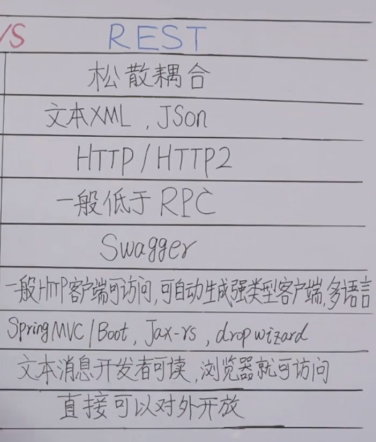 VS REST
松散耦合
文本XML，JSon
HTTP/HTTP2
一般低于RPC
Swagger
一般HTTP客户端可访问，可自动生成强类型客户端，多语言
SpringMVC/Boot，Jax-rs，dropwizard
文本消息开发者可读，浏览器就可访问
直接可以对外开放